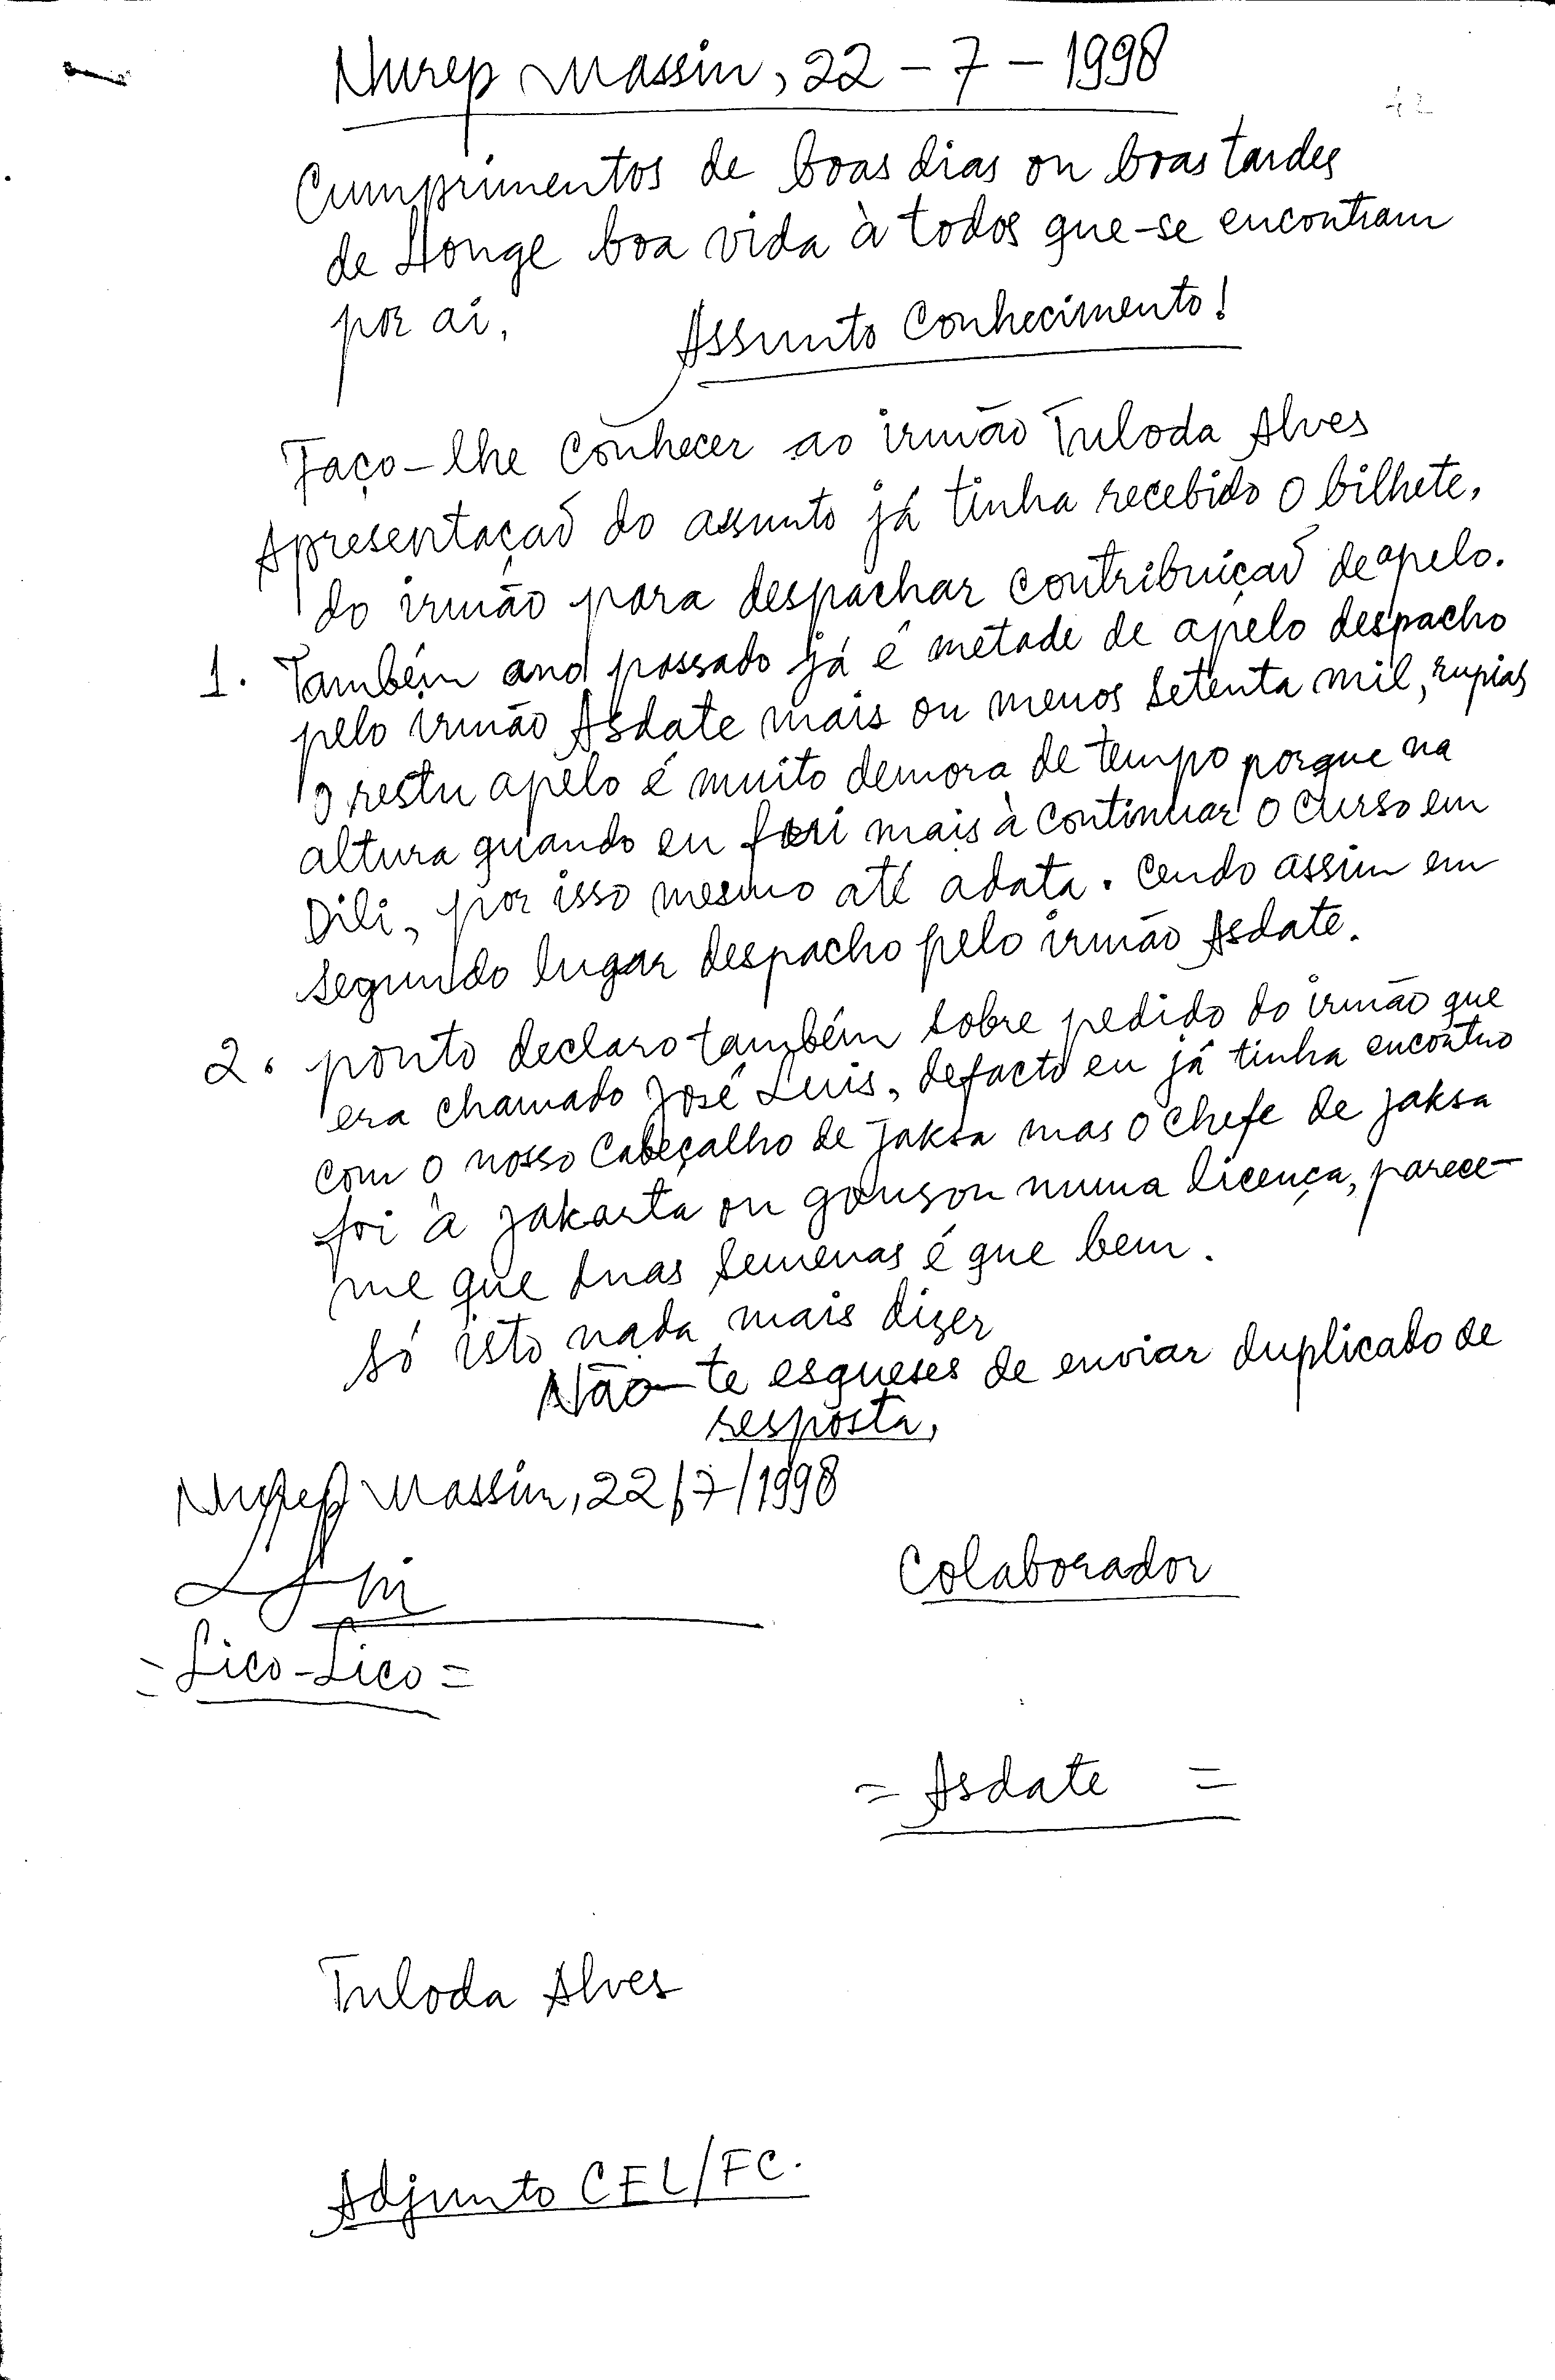 Nurep Massin, 22 - 7 - 1998
Cumprimentos de boas dias ou boas tardes
de Honge boa vida à todos que-se encontram
por ai,
Assunto Conhecimento!
Faço-lhe conhecer ao irmão Tuloda Alves
Apresentaçaõ do assunto já tinha recebido o bilhete,
do irmão para despachar contribuiçaõ de apelo.
1. Também ano passado já é metade de apelo despacho
pelo irmão Asdate mais ou menos setenta mil, rupias
o restu apelo é muito demora de tempo porque na
altura quando eu fui mais à continuar o curso em
Dili, por isso mesmo até adata. Cendo assim em
segundo lugar despacho pelo irmão Asdate.
2. ponto declaro também sobre pedido do irmão que
era chamado José Luis, defacto eu já tinha encontro
com o nosso Cabeçalho de Jaksa mas o chefe de jaksa
foi à Jakarta ou gouson numa licença, parece-
me que duas semenas é que bem.
só isto nada mais dizer
Não-te esqueses de enviar duplicado de
resposta,
Nurep Massin, 22/7/1998
Colaborador
= Lico-Lico =
= Asdate =
Tuloda Alves
Adjunto CEL/FC.